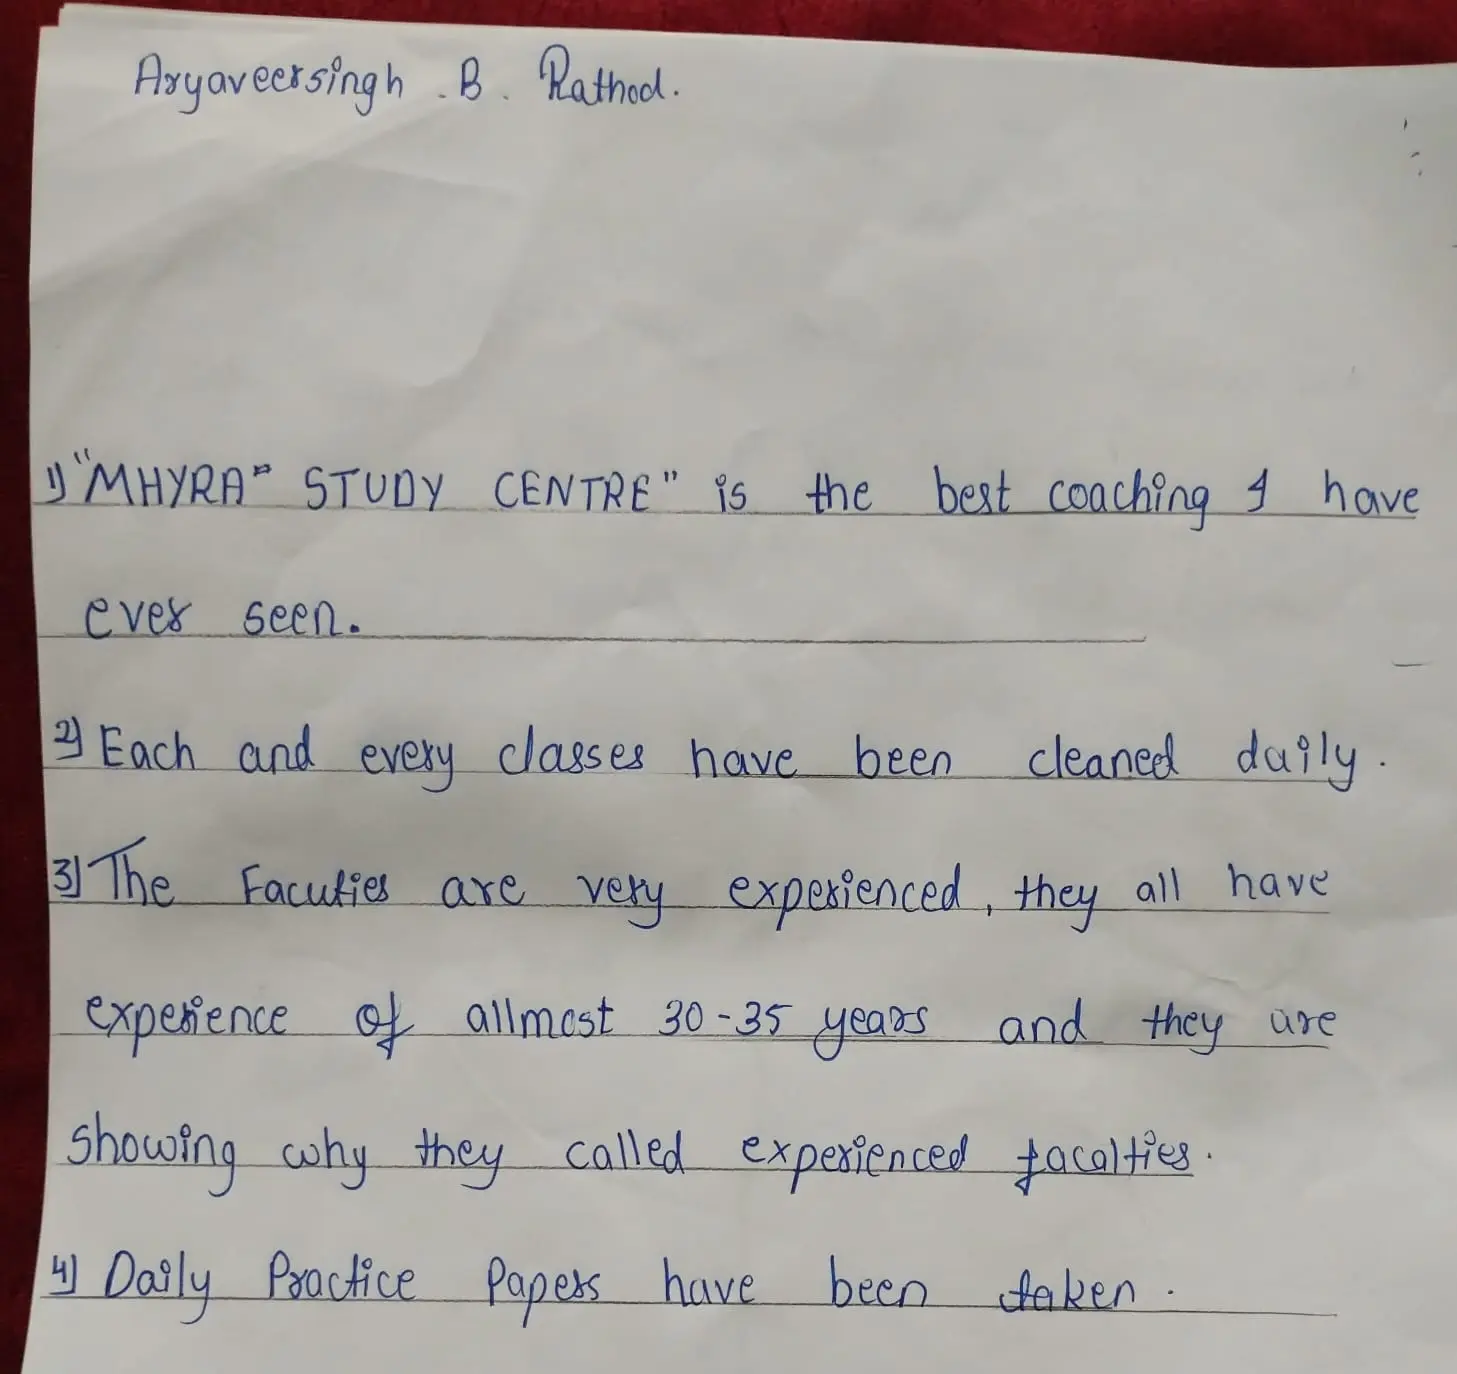 Aryaveersingh . B . Rathod.
1) "MHYRA" STUDY CENTRE" is the best coaching I have
ever seen.
2) Each and every classes have been cleaned daily.
3) The Faculties are very experienced, they all have
experience of allmost 30-35 years and they are
showing why they called experienced facalties.
4) Daily Practice Papers have been taken.